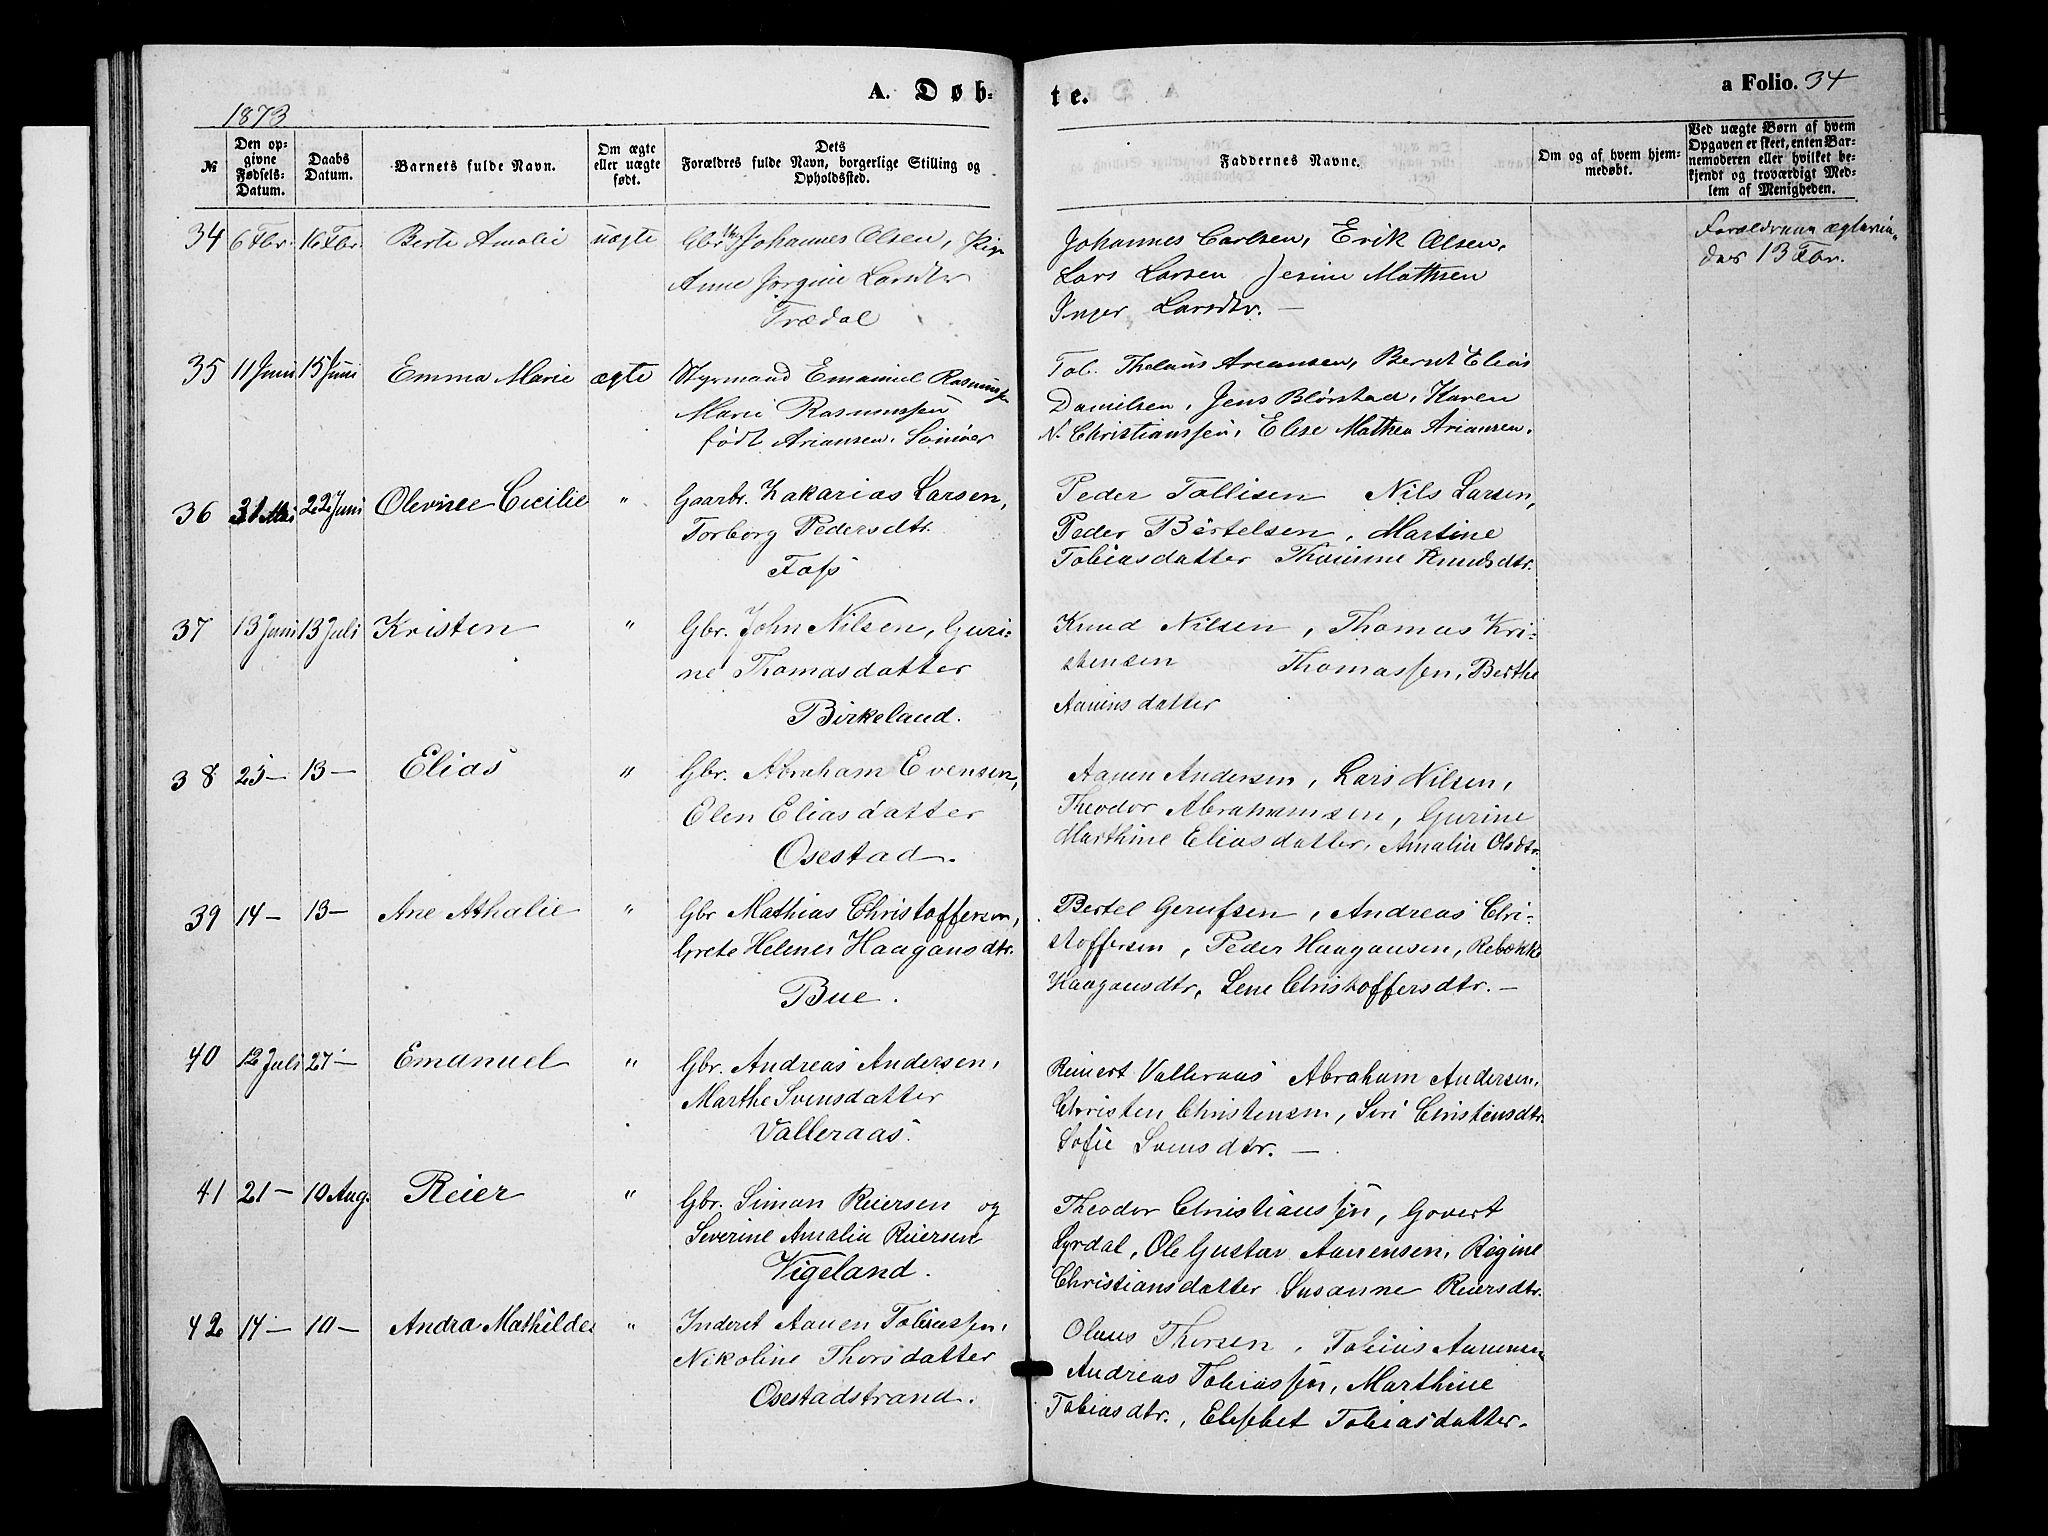 A. Døb-
te.
a Folio. 34
1873
№
Den op-
givne
Fødsels-
Datum.
Daabs
Datum.
Barnets fulde Navn.
Om ægte
eller uægte
født.
Dets
Forældres fulde Navn, borgerlige Stilling og
Opholdssted.
Faddernes Navne.
Om og af hvem hjem-
medøbt.
Ved uægte Børn af hvem
Opgaven er skeet, enten Bar-
nemoderen eller hvilket be-
kjendt og troværdigt Med-
lem af Menigheden.
34 6 Fbr. 16 Fbr. Berte Amalie uægte
Johannes Olsen, Pige
Anne Jørgine Larsdtr
Trædal
Johannes Carlsen, Erik Olsen,
Lars Larsen Jesine Mathsen
Inger Larsdtr. —
Forældrene ægtevie-
des 13 Fbr.
35 11 Juni 15 Juni Emma Marie ægte
Styrmand Emanuel Rasmussen
Marie Rasmussen
født Ariansen.
Tob. Ariansen, Bernt Elias
Danielsen, Jens Blørstad, Karen
N. Christianssen, Elise Mathea Ariansen.
36 31 Mai 22 Juni Olevine Cicilie "
Gaarbr. Zakarias Larsen,
Torborg Pedersdtr.
Foss
Peder Tollisen Nils Larsen,
Peder Bertelsen, Martine
Tobiasdatter Thomine Knudsdtr.
37 13 Juni 13 Juli Kristen "
Gbr. John Nilsen, Guri-
ne Thomasdatter
Birkeland.
Knud Nilsen, Thomas Kri-
stensen Thomassen, Berthe
Aanensdatter
38 25 — 13 — Elias "
Gbr. Abraham Evensen,
Elen Eliasdatter
Osestad.
Aanen Andersen, Lars Nilsen,
Theodor Abrahamsen, Gurine
Marthine Eliasdatter, Amalia Olsdtr.
39 14 — 13 — Ane Athalie "
Gbr Mathias Christoffersen,
Grete Helene Haagansdtr.
Bue.
Bertel Gerufsen, Andreas Chri-
stoffersen, Peder Haagansen, Rebekke
Haagansdtr, Lene Christoffersdtr. —
40 12 Juli 27 — Emanuel "
Gbr. Andreas Andersen,
Marthe Svensdatter
Valleraas.
Reinert Valleraas Abraham Andersen,
Christen Christensen, Siri Christensdtr.
Sofie Svensdtr. —
41 21 — 10 Aug. Reier "
Gbr. Simon Reiersen og
Severine Amalia Reiersen
Vigeland.
Theodor Christianssen, Govert
Lyrdal, Ole Gustav Aanensen, Regine
Christiansdatter Susanne Reiersdtr.
42 14 — 10 — Andra Mathilde "
Inderst Aanen Tobiassen,
Nikoline Thorsdatter
Osestadstrand.
Olaus Thorsen, Tobias Aanensen
Andreas Tobiassen, Marthine
Tobiasdtr., Elisebet Tobiasdatter.